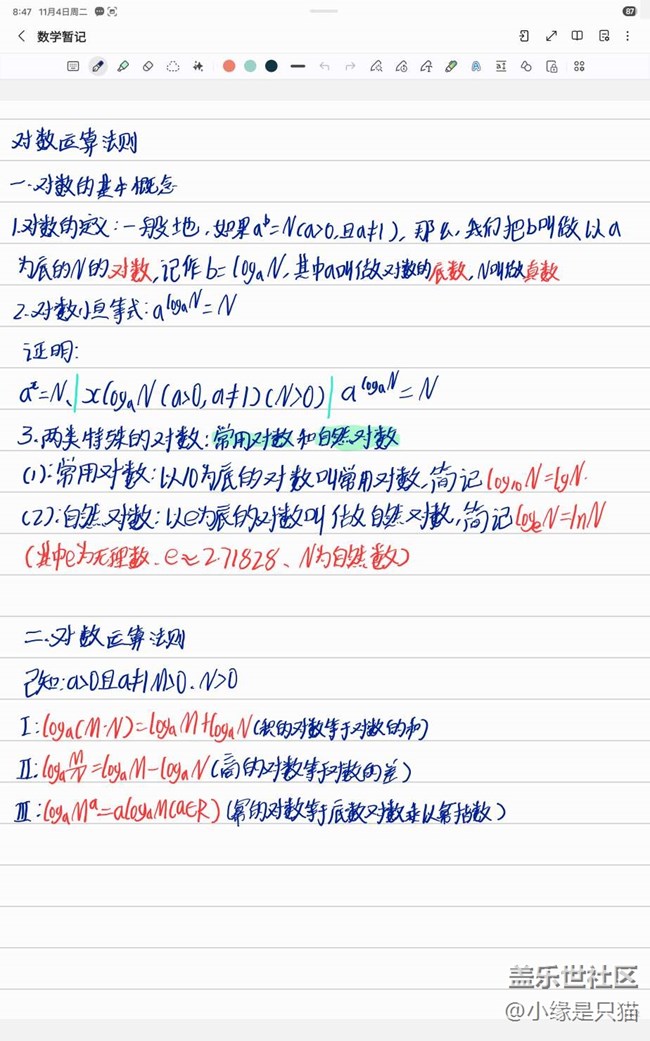 8:47 11月4日周二
87
数学暂记
对数运算法则
一.对数的基本概念
1.对数的定义:一般地,如果aᵇ=N(a>0,且a≠1),那么,我们把b叫做以a
为底的N的对数,记作b=logₐN,其中a叫做对数的底数,N叫做真数
2.对数恒等式:a^logₐN=N
证明:
aˣ=N、|xlogₐN(a>0,a≠1)(N>0)|a^logₐN=N
3.两类特殊的对数:常用对数和自然对数
(1):常用对数:以10为底的对数叫常用对数,简记log₁₀N=lgN.
(2):自然对数:以e为底的对数叫做自然对数,简记logₑN=lnN
(其中e为无理数、e≈2.71828、N为自然数)
二.对数运算法则
已知:a>0且a≠1 M>0、N>0
Ⅰ:logₐ(M·N)=logₐM+logₐN(积的对数等于对数的和)
Ⅱ:logₐM/N=logₐM-logₐN(商的对数等于对数的差)
Ⅲ:logₐMᵃ=alogₐM(a∈R)(幂的对数等于底数对数乘以幂指数)
盖乐世社区
@小缘是只猫